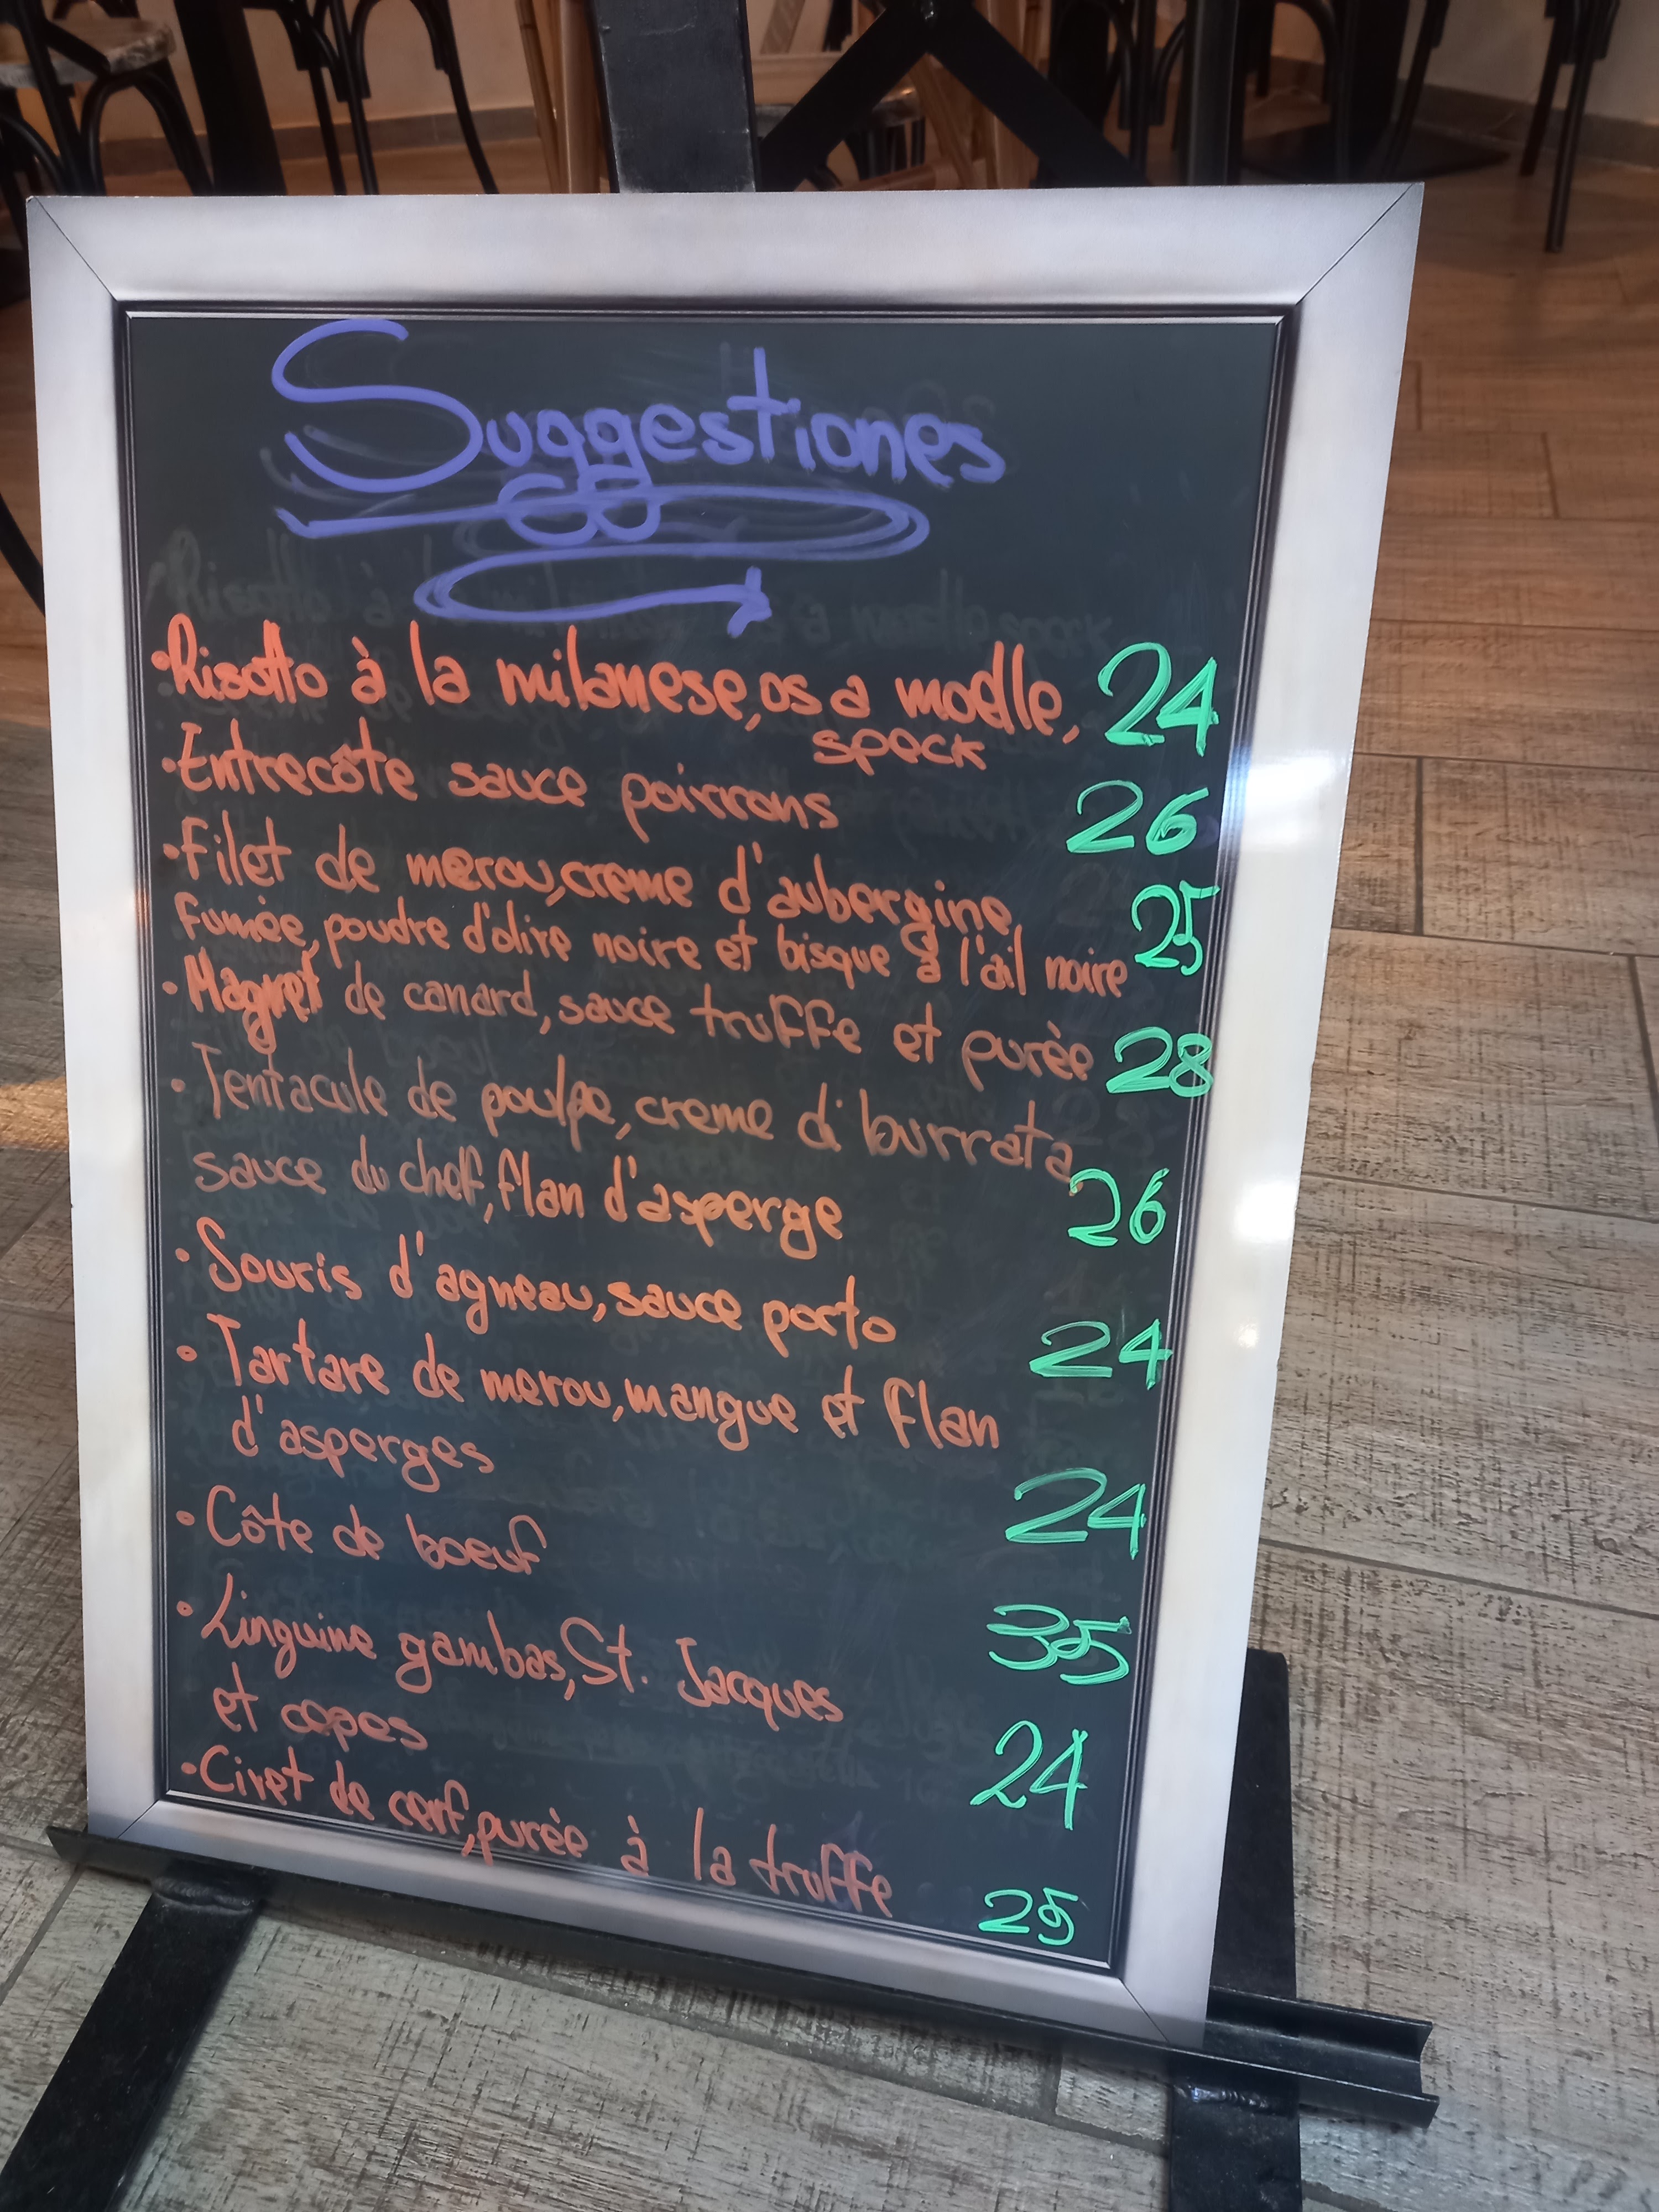 Suggestiones
•Risotto à la milanese, os a modle, 24
speck
•Entrecôte sauce poivrons 26
•Filet de merou, creme d'aubergine,
fumée, poudre d'olive noire et bisque à l'ail noire 25
•Magret de canard, sauce truffe et purée 28
•Tentacule de poulpe, creme di burrata,
sauce du chef, flan d'asperge 26
•Souris d'agneau, sauce porto 24
•Tartare de merou, mangue et flan
d'asperges 24
•Côte de boeuf 35
•Linguine gambas, St. Jacques
et cepes 24
•Civet de cerf, purée à la truffe 25